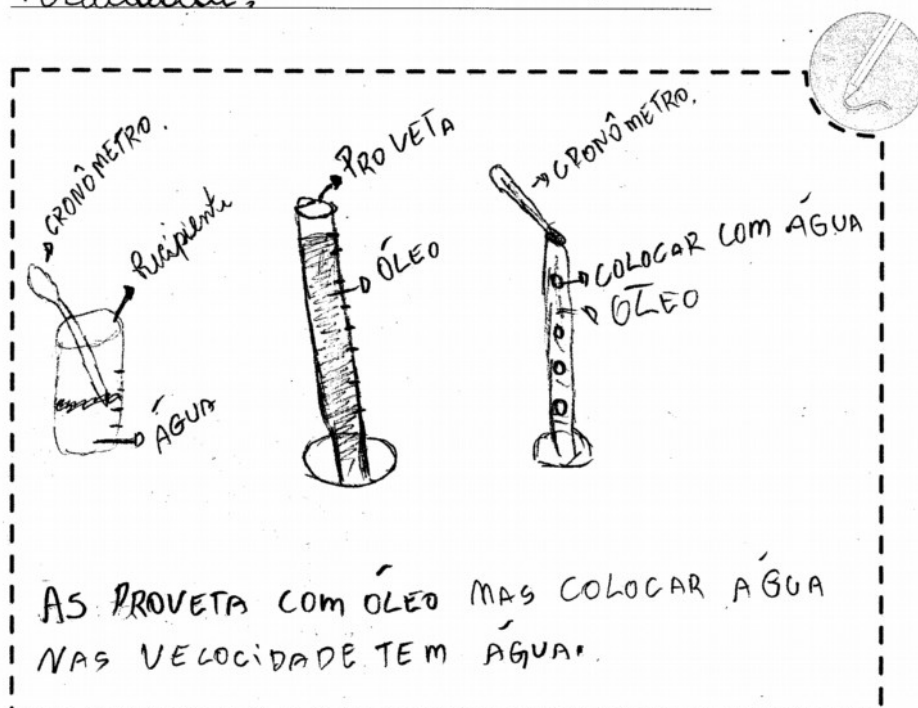 CRONÔMETRO.
Recipiente
ÁGUA
PROVETA
ÓLEO
CRONÔMETRO.
COLOCAR COM ÁGUA
ÓLEO
AS PROVETA COM ÓLEO MAS COLOCAR AGUA
NAS VELOCIDADE TEM ÁGUA.